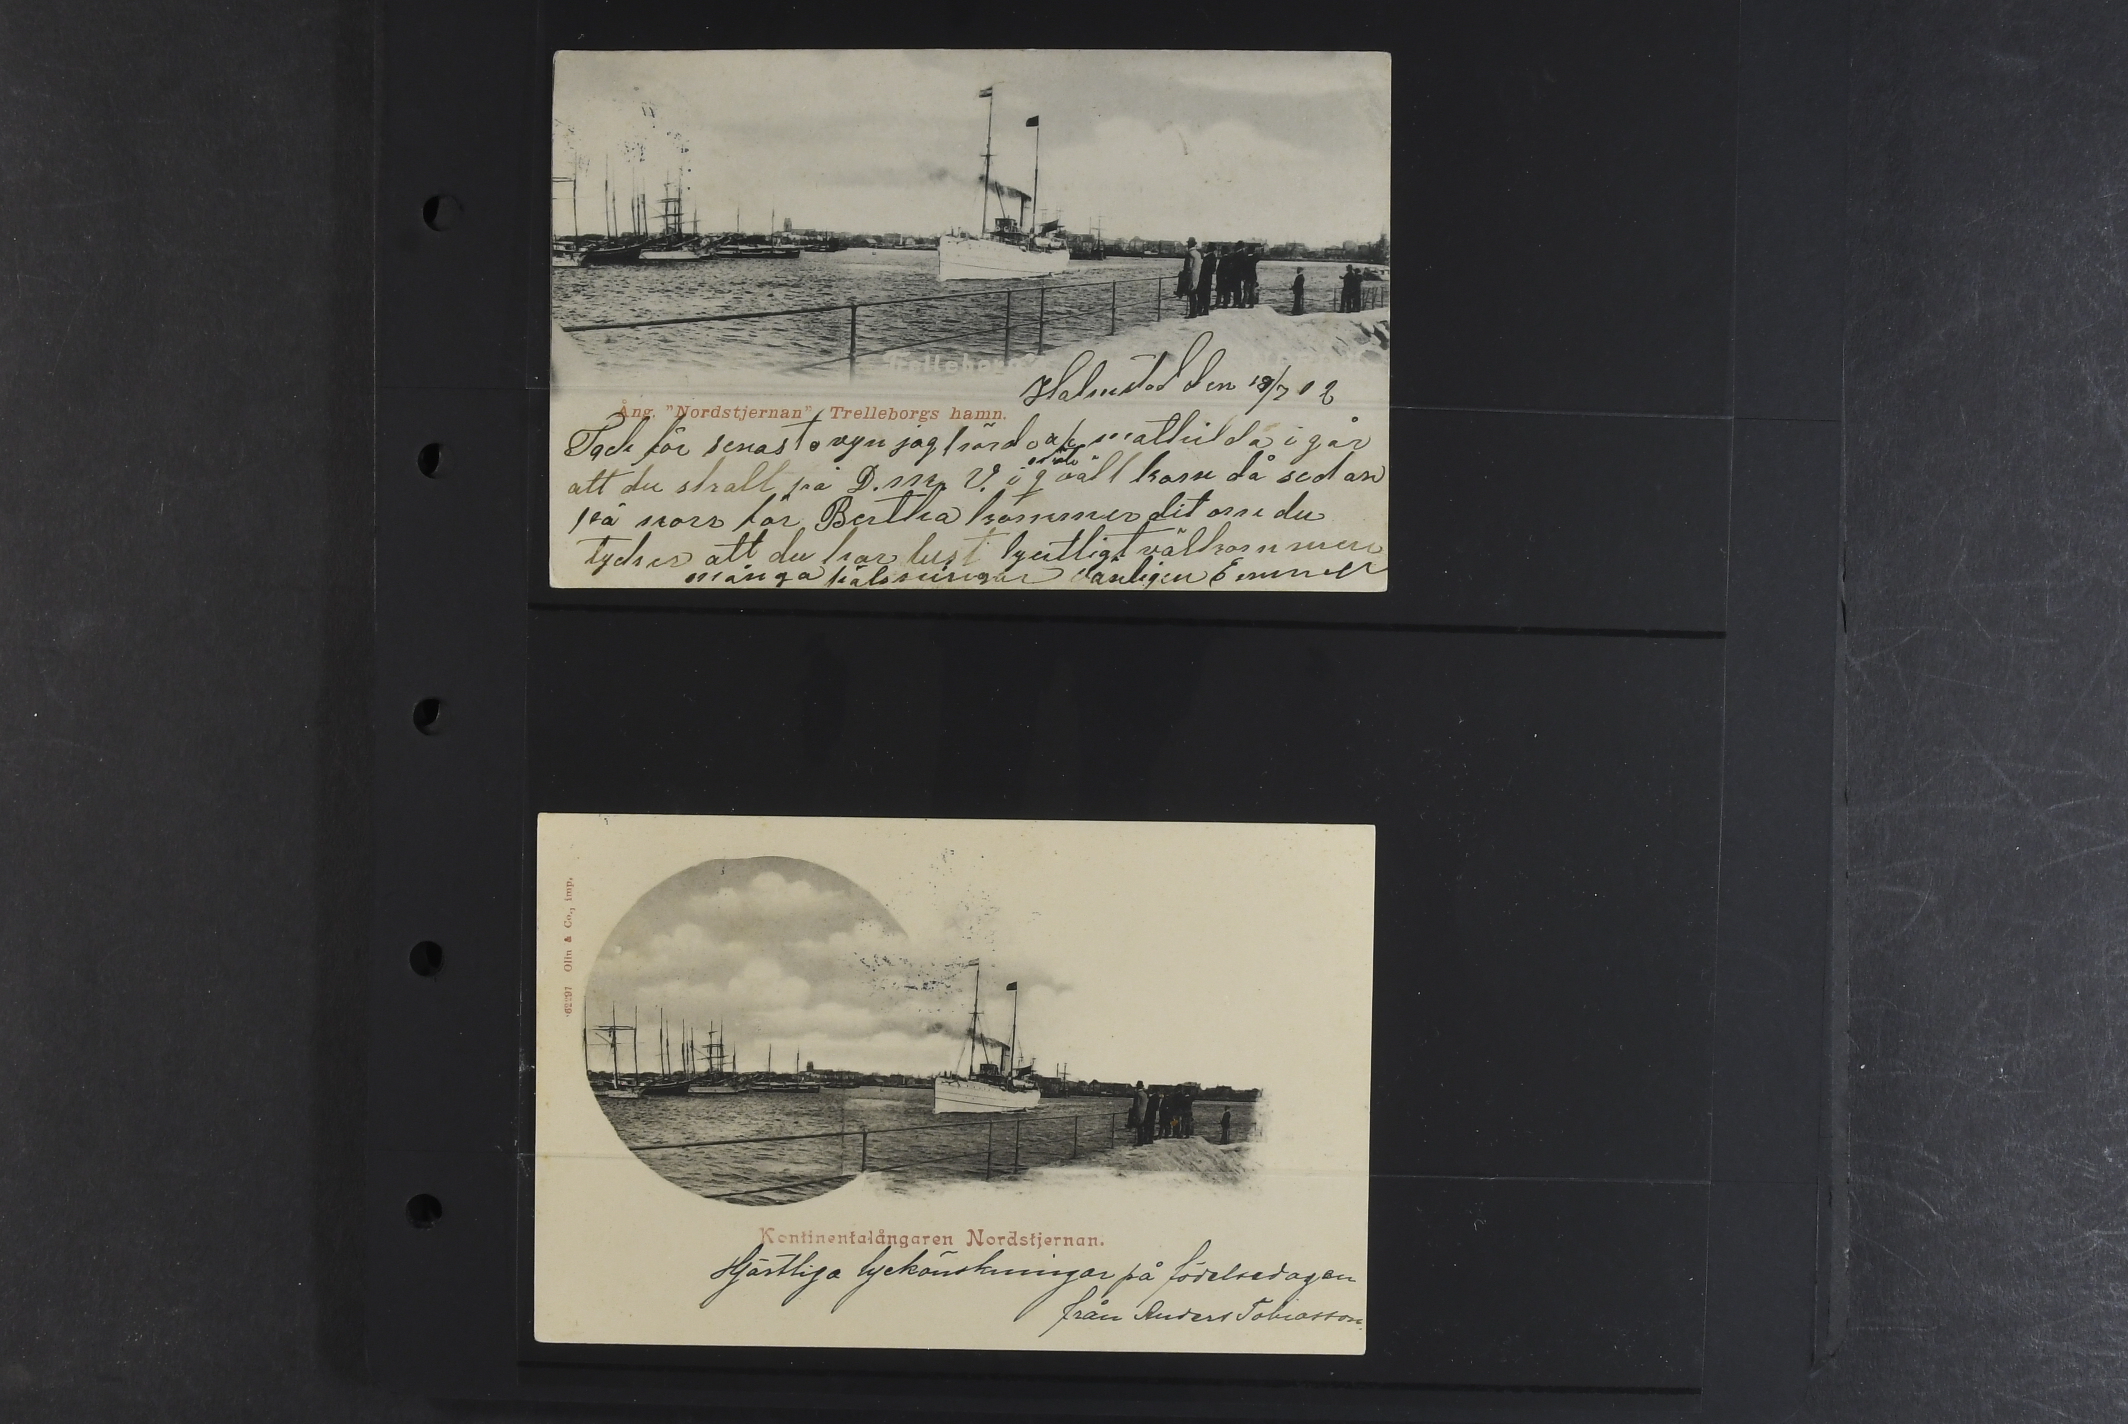 Trelleborg
Halmstad den 18/7 02
Ång. "Nordstjernan" Trelleborgs hamn.
Tack för senast jag hörde af mathilda i går
att du skall på D. M. V. i qväll kom då sedan
på morr för Bertha kommer dit om du
tycker att du har lust hjertligt välkommen
många hälsningar vänligen
62297 Olin & Co., imp.
Kontinentalångaren Nordstjernan.
Hjärtliga lyckönskningar på födelsedagen
från Anders Tobiasson.